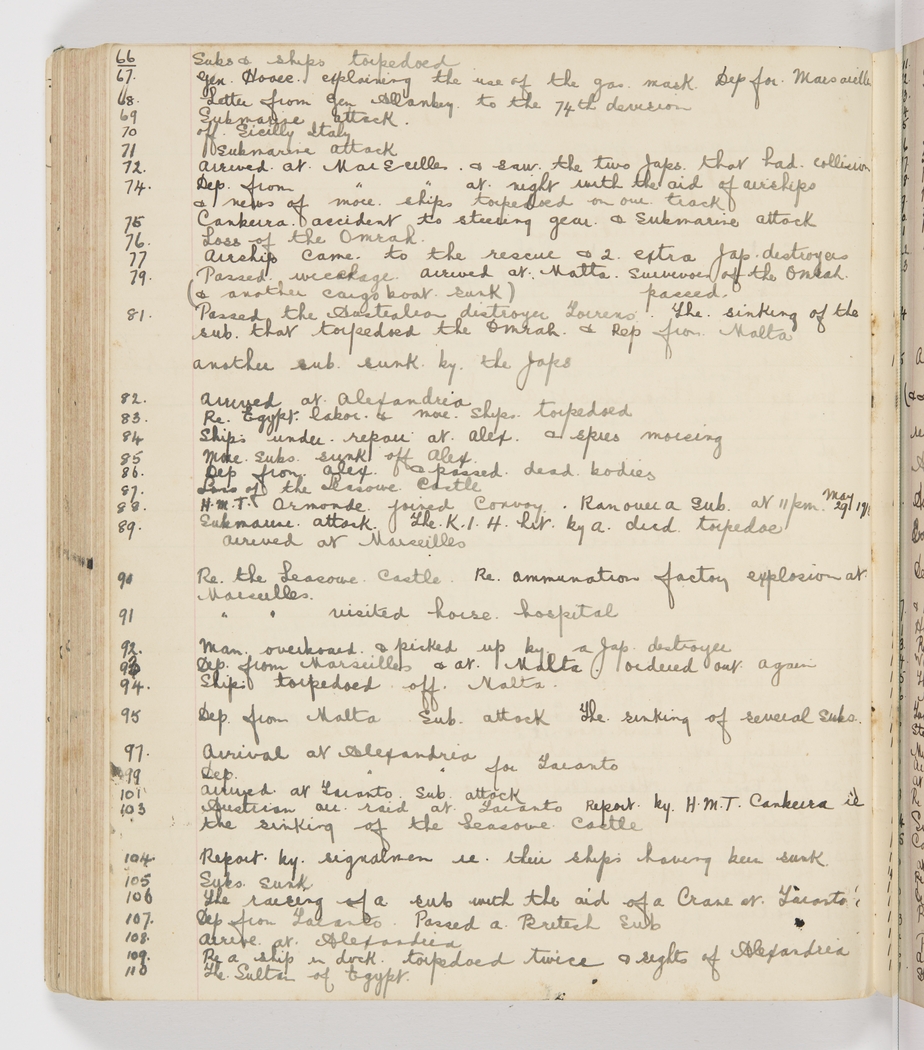 66 Subs & ships torpedoed
67. Gen. Howe. explaining the use of the gas mask. Dep for. Marsaielle
68. Letter from Gen Allanbey. to the 74th devision
69 Submarine attack.
70 off. Sicilly Italy
71 Submarine attack
72. arrived. at. Marseilles. & saw. the two Japs. that had. collision
74. Dep. from " " at. night with the aid of airships
& news of more. ships torpedoed on our track
75 Canbeira. accident to steering gear. & Submarine attack
76. Loss of the Omrah.
77 Airship came. to the rescue & 2. extra Jap. destroyers
79. Passed wreckage. arrived at. Malta. Survivors of the Omrah.
(& another cargo boat. sunk) passed.
81. Passed the Australian destroyer Torrens. The. sinking of the
sub. that torpedoed the Omrah. & Dep from Malta
another sub. sunk. by. the Japs
82. arrived at. Alexandria
83. Re. Egypt. labor. & more. ships. torpedoed
84 Ships under. repair at. Alex. & spies morsing
85 More. Subs. sunk off Alex.
86. Dep from. Alex. & passed. dead bodies
87. Loss of the Leasowe Castle
88. H.M.T. Ormonde. joined Convoy. Ran over a Sub. at 11 pm. May 29
89. Submarine attack. The. K. I. H. hit by a. died torpedoe
arrived at Marseilles
90 Re. the Leasowe. Castle. Re. ammunation factory explosion at.
Marseilles.
91 " " visited horse. hospital
92. Man. overboard. & picked up by. a Jap. destroyer
93 Dep. from Marseilles & at. Malta. ordered out again
94. Ships torpedoed off. Malta.
95 Dep from Malta Sub. attack The. sinking of several Subs.
97. Arrival at Alexandria
99 Dep. " " for Taranto
101 arrived at Taranto. Sub. attack
103 Austrian air. raid at. Taranto Report. by. H.M.T. Canbeira ie
the sinking of the Leasowe Castle
104. Report. by. signalmen ie. their ships having been sunk
105 Subs. sunk
106 The raising of a sub with the aid of a Crane at. Taranto
107. Dep from Taranto. Passed a. British Sub
108. arrive. at. Alexandria
109. Re a ship in dock. torpedoed twice & sights of Alexandria
110 The. Sultan of Egypt.